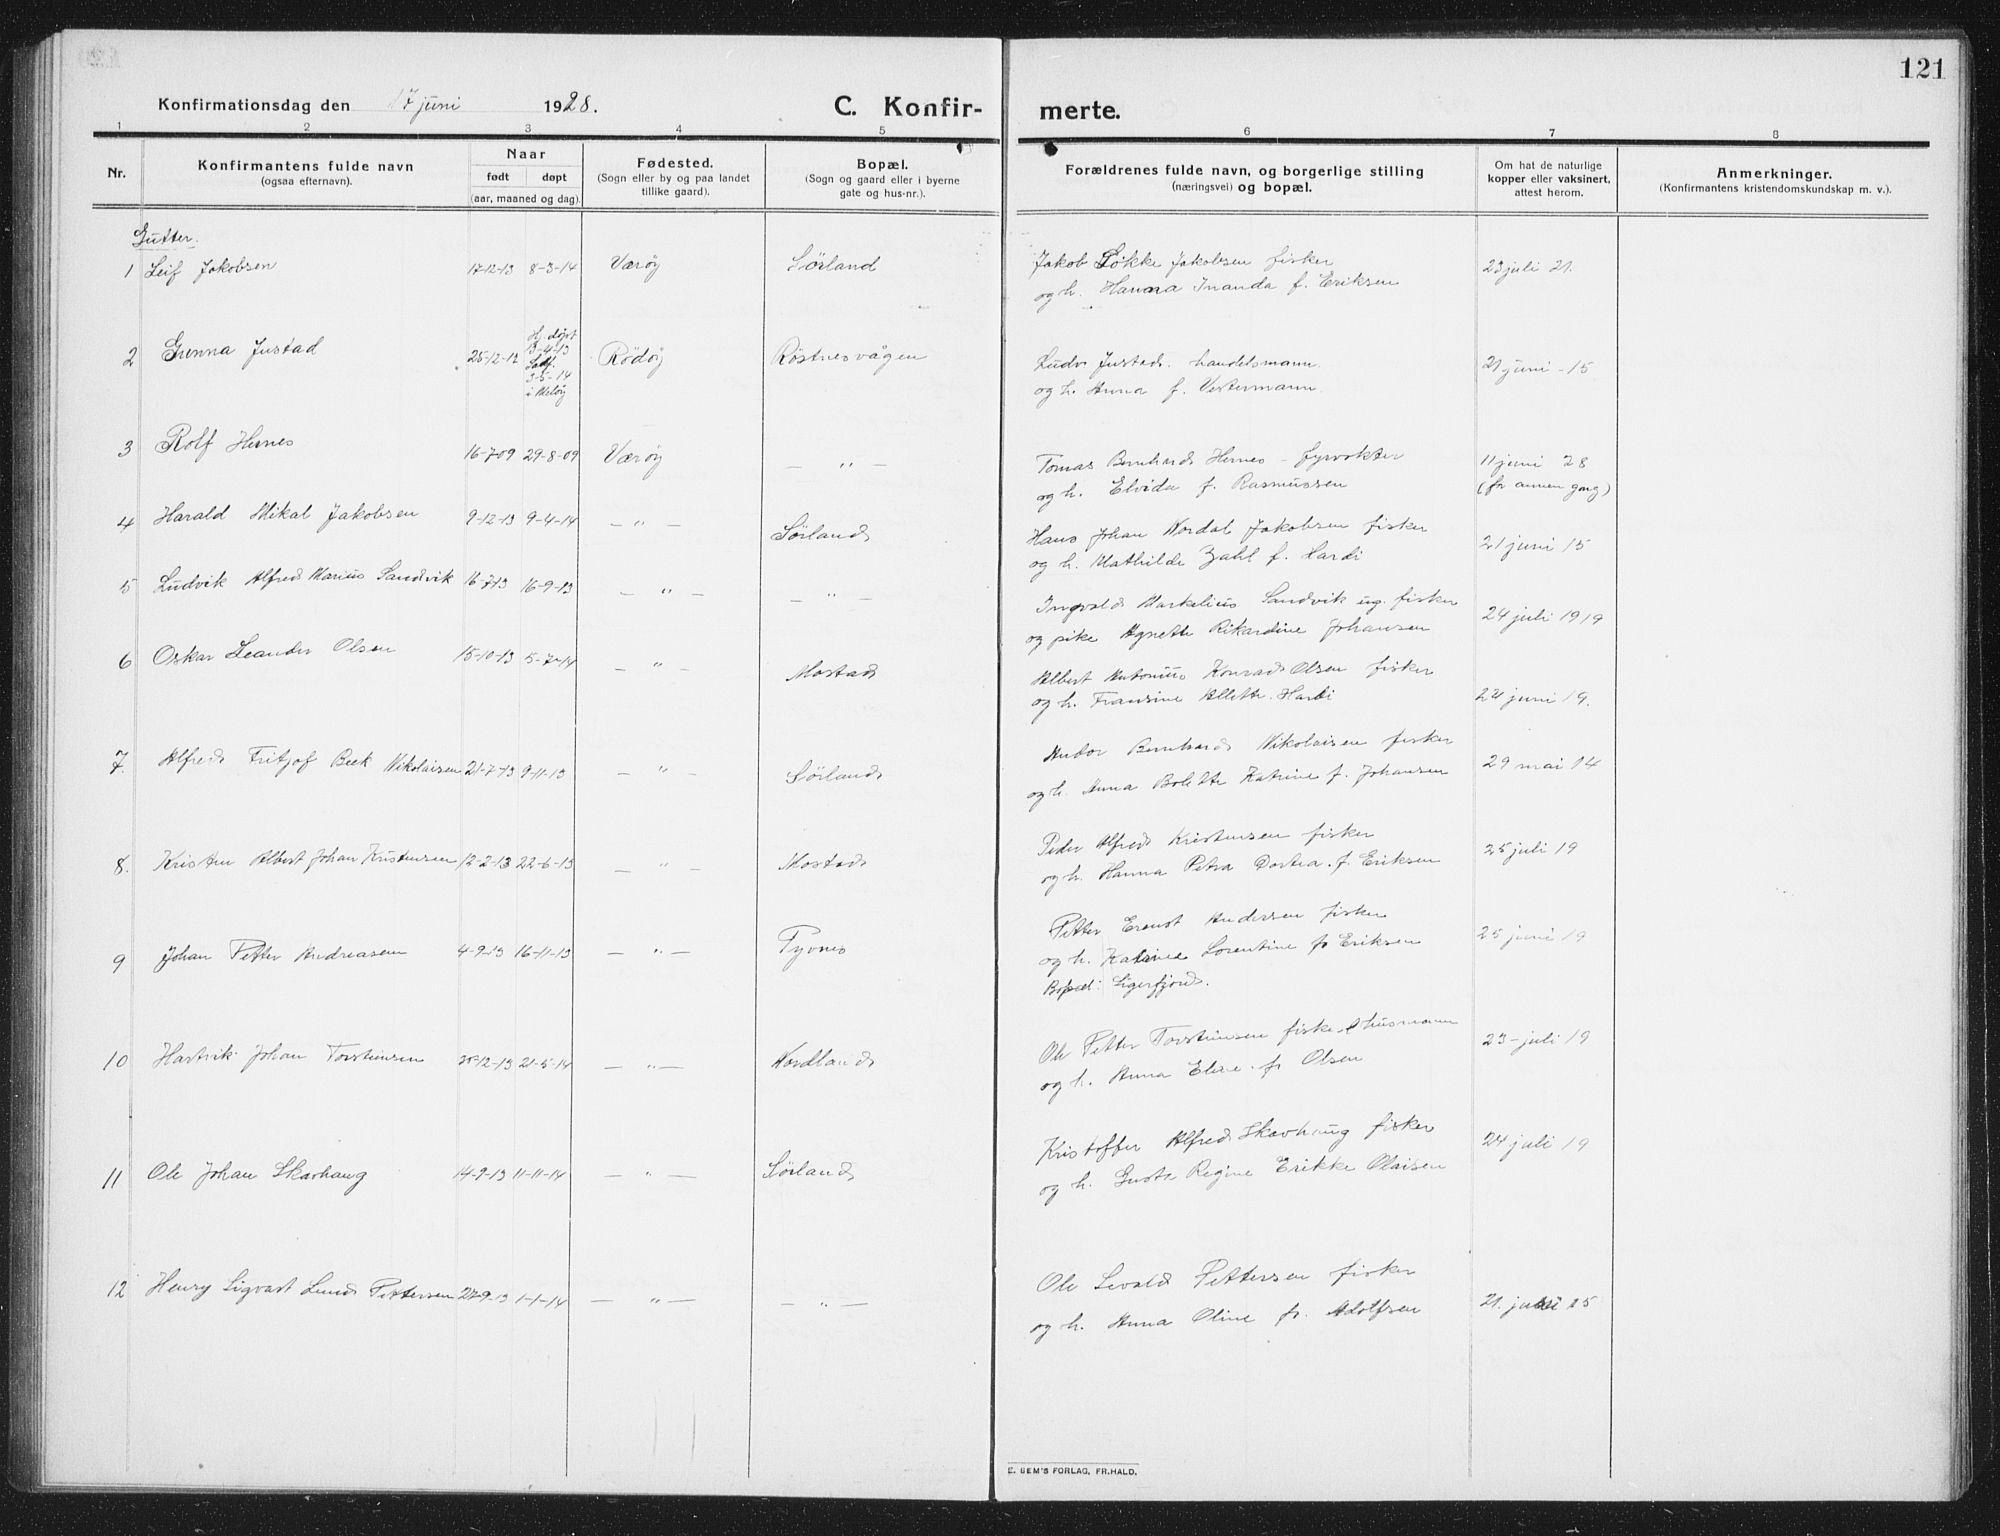 121
Konfirmationsdag den 17 juni 1928.
C. Konfirmerte.
1 2 3 4 5 6 7 8
Nr.
Konfirmantens fulde navn
(ogsaa efternavn).
Naar
født døpt
(aar, maaned og dag).
Fødested.
(Sogn eller by og paa landet
tillike gaard).
Bopæl.
(Sogn og gaard eller i byerne
gate og hus-nr.).
Forældrenes fulde navn, og borgerlige stilling
(næringsvei) og bopæl.
Om hat de naturlige
kopper eller vaksinert,
attest herom.
Anmerkninger.
(Konfirmantens kristendomskundskap m. v.).
Gutter.
1 Leif Jakobsen 17-12-13 8-3-14 Værøy Sörland
Jakob Lökke Jakobsen fisker
og h. Hanna Inanda f. Eriksen
23 juli 21.
2 Gunna Justad 25-12-12
Hj. døpt
13-4-13
Stadf.
3-5-14
i Meløy
Rödöy Røstnesvågen
Ludv Justad. handelsmann.
og h. Anna f. Vestermann.
21 juni - 15
3 Rolf Hernes 16-7-09 29-8-09 Værøy — " —
Tomas Bernhard Hernes - fyrvokter
og h. Elvida f. Rasmussen
11 juni 28
(for annen gang)
4 Harald Mikal Jakobsen 9-12-13 9-4-14 — " — Sørland
Hans Johan Nordal Jakobsen fisker
og h. Mathilde Zahl f. Hardi
21 juni 15
5 Ludvik Alfred Marius Sandvik 16-7-13 16-9-13 — " — — " —
Ingvald Markelius Sandvik ug. fisker
og pike Agnette Rikardine Johansen
24 juli 1919
6 Oskar Leander Olsen 15-10-13 5-7-14 — " — Mostad
Albert Antonius Konrad Olsen fisker
og h. Fransine Allette. Hardi
24 juni 19.
7. Alfred Fritjof Beck Nikolaisen 21-7-13 9-11-13 — " — Sörland
Andor Bernhard Nikolaisen fisker
og h. Anna Bolette Katrine f. Johansen
29 mai 14
8. Kristen Albert Johan Kristensen 12-2-13 22-6-13 — " — Mostad
Peder Alfred Kristensen fisker
og h. Hanna Petra Dortea. f. Eriksen
25 juli 19
9 Johan Petter Andreasen 4-9-13 16-11-13 — " — Tyvnes
Petter Erenst Andersen fisker
og h. Katrine Lorentine f. Eriksen
Bopæl: Sigerfjord.
25 juni 19
10 Hartvik Johan Torsteinsen 12-13 21-5-14 — " — Nordland
Ole Petter Torsteinsen fisker & husmann
og h. Anna Eline. f. Olsen
23 - juli 19
11 Ole Johan Skarhaug 14-9-13 11-11-14 — " — Sörland
Kristoffer Alfred Skavhaug fisker
og h. Gusta Regine Erikke Olaisen
24 juli 19
12 Henry Sigvart Lund Pettersen 27-9-13 1-1-14 — " — — " —
Ole Sevald Pettersen fisker
og h. Anna Oline f. Adolfsen
21. juni 15
E. SEM'S FORLAG, FR.HALD.